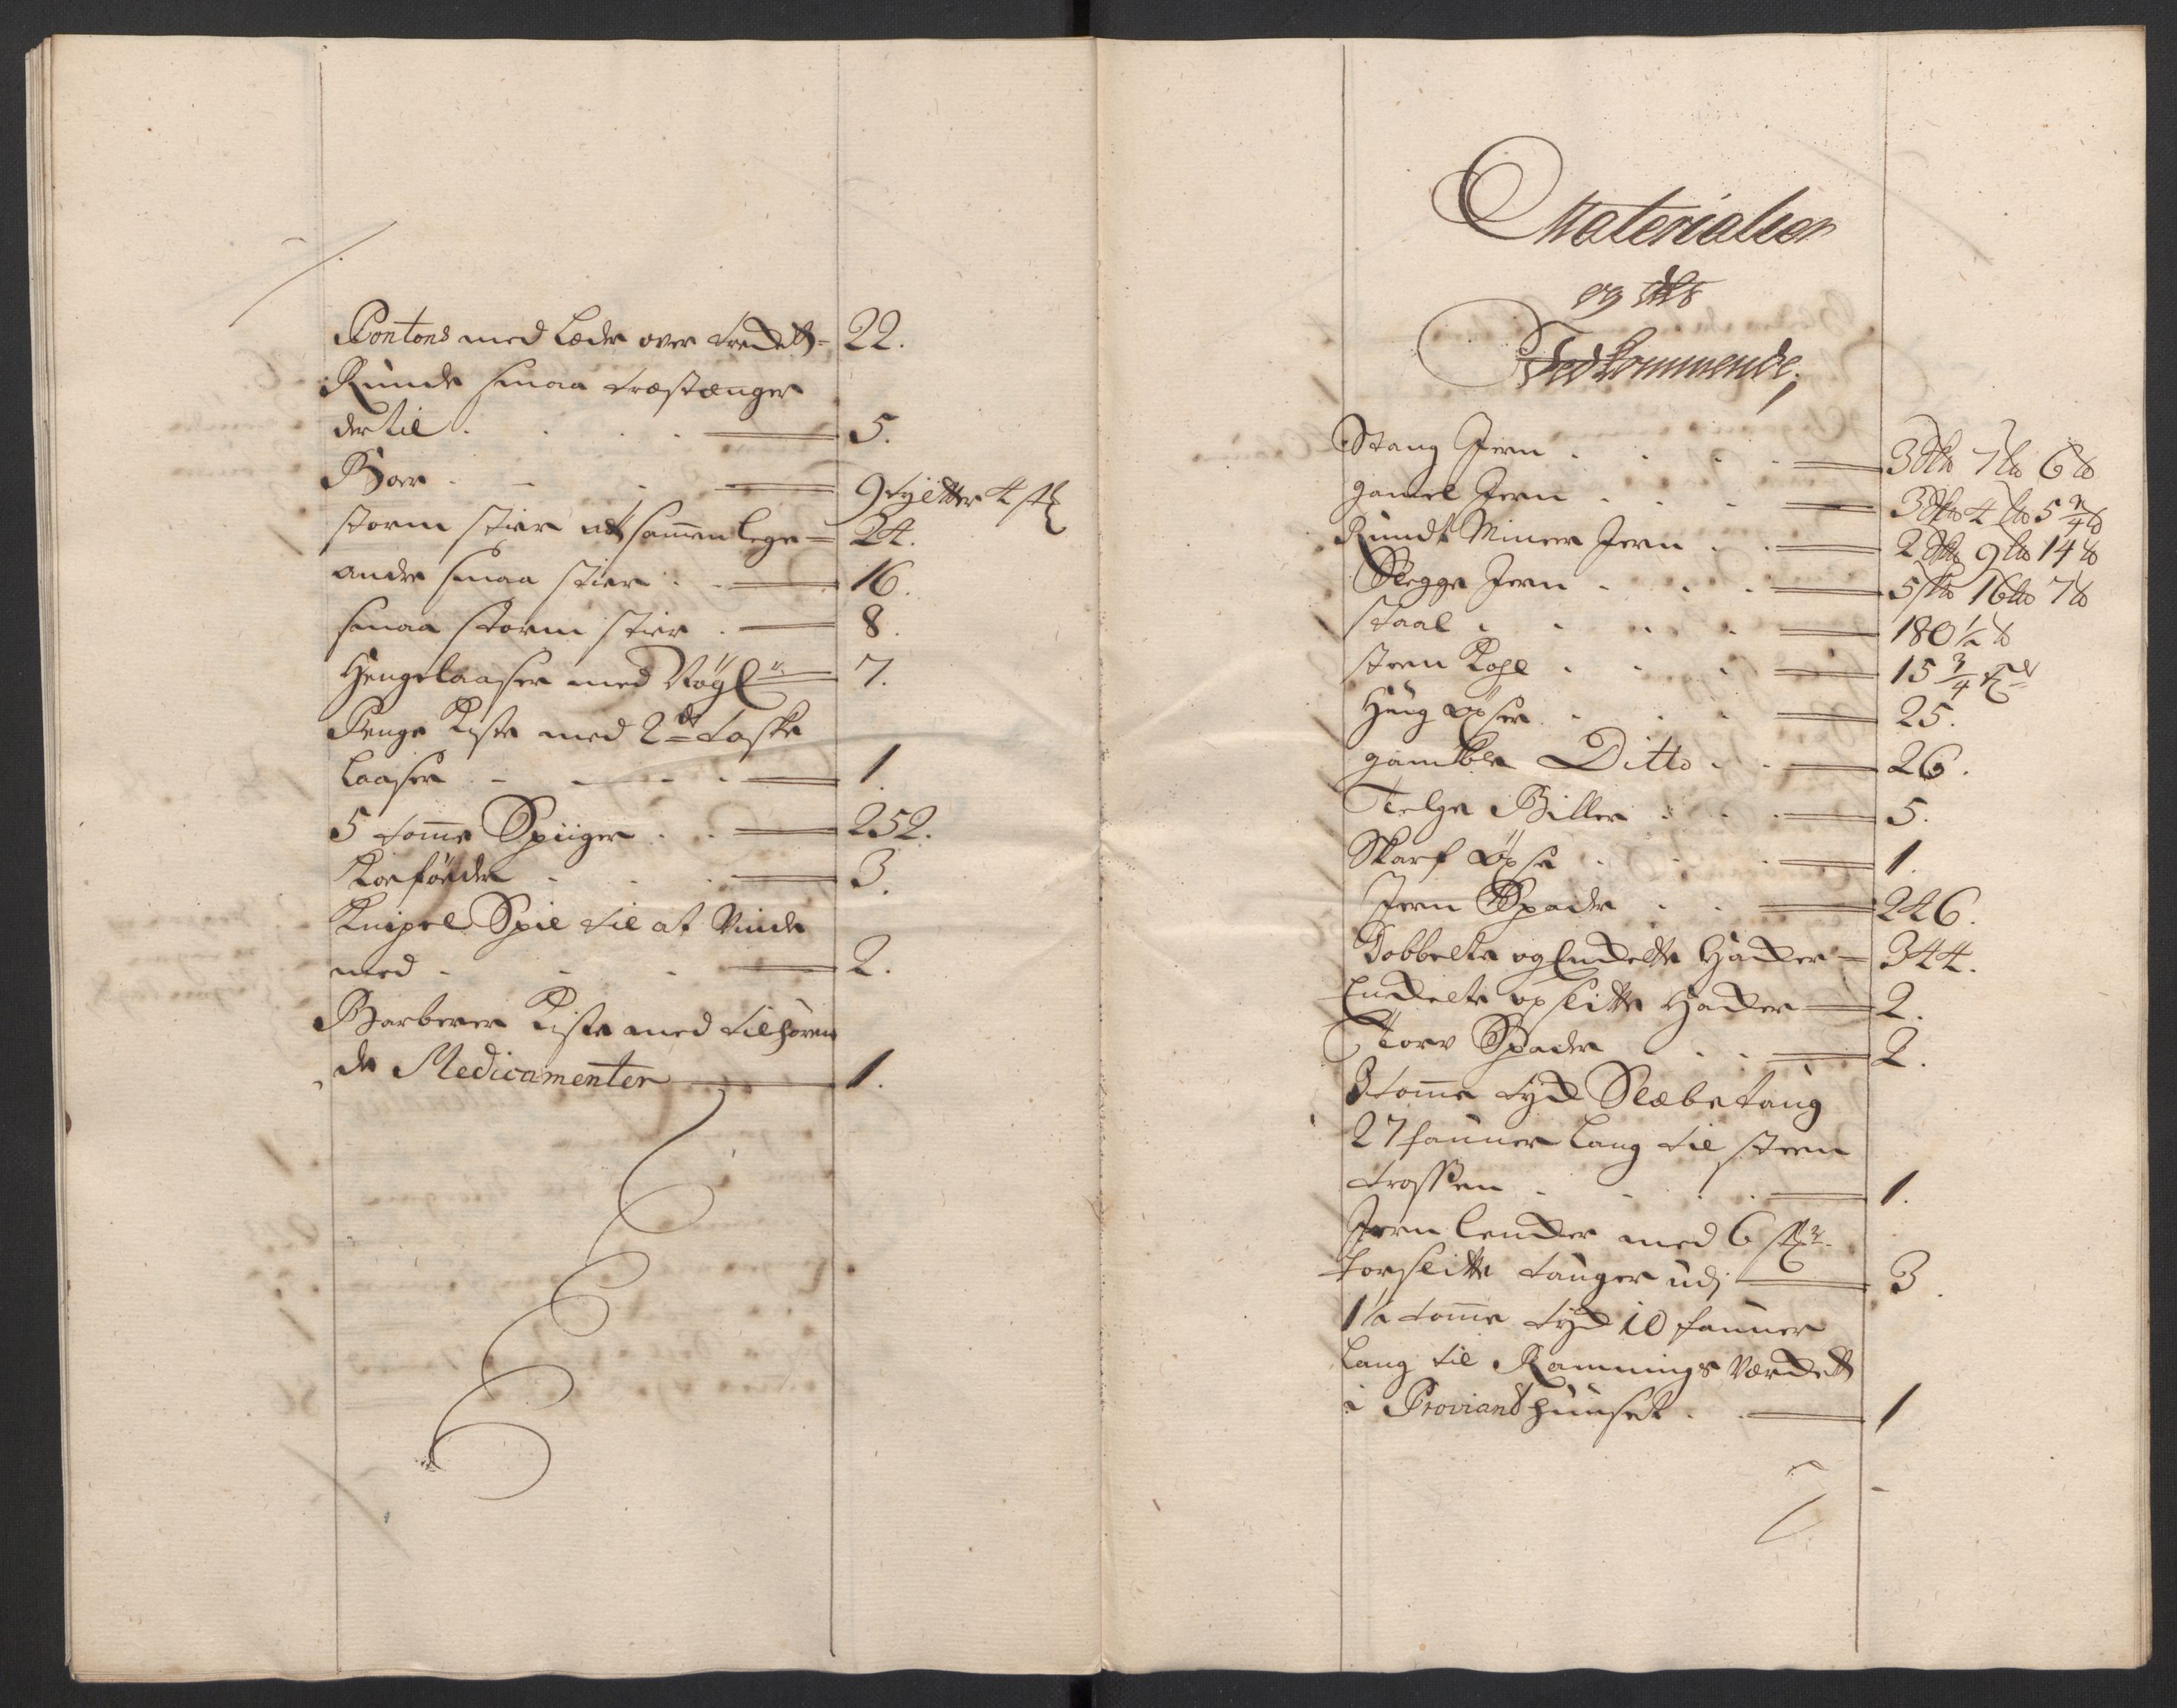 Pontons med Læder over tredett = 22.
Runde smaa træstænger
der til . . . . 5.
Boer . . . 9 tyltter 4 st
storm stier att sammenlege = 24.
andre smaa stier . . 16.
smaa storm stier . 8.
Hengelaaser med Nøgl 7.
Penge Kiste med 2de taske
laaser . . . . 1.
5 tomme Spiiger . . 252.
Koeføeder . . . 3.
Knipel Spil til at Vinde
med . . . 2.
Barberer Kiste med tilhøren
de Medicamenter 1.
Materialier
og dets
Vedkommende,
Stang Jern . . . . 3 7 6
gamel Jern . . . . 3 4 5 3/4
Rundt Mineer Jern . . 2 9 14
Slegge Jern . . . 5 16 7
staal . . . . 180 1/2
steen Kohl . . . 15 3/4
Hug øxser . . . 25.
gamble Ditto . . 26.
Telge Biller . . . 5.
Skarf øxse . . . 1.
Jern Spader . . 246.
Dobbelte og Enckelte Hacker = 344.
Enckelte opslitte Hacker 2.
Torv Spader . . 2.
3 tomme tyck Slæbe toug
27 fauner lang til steen
trossen . . . . 1.
Jern lencker med 6 st
forslitte tauger udj 3.
1 1/2 tomme tyck 10 fauner
lang til Rammings Værckett
i Provianthuuset . . 1